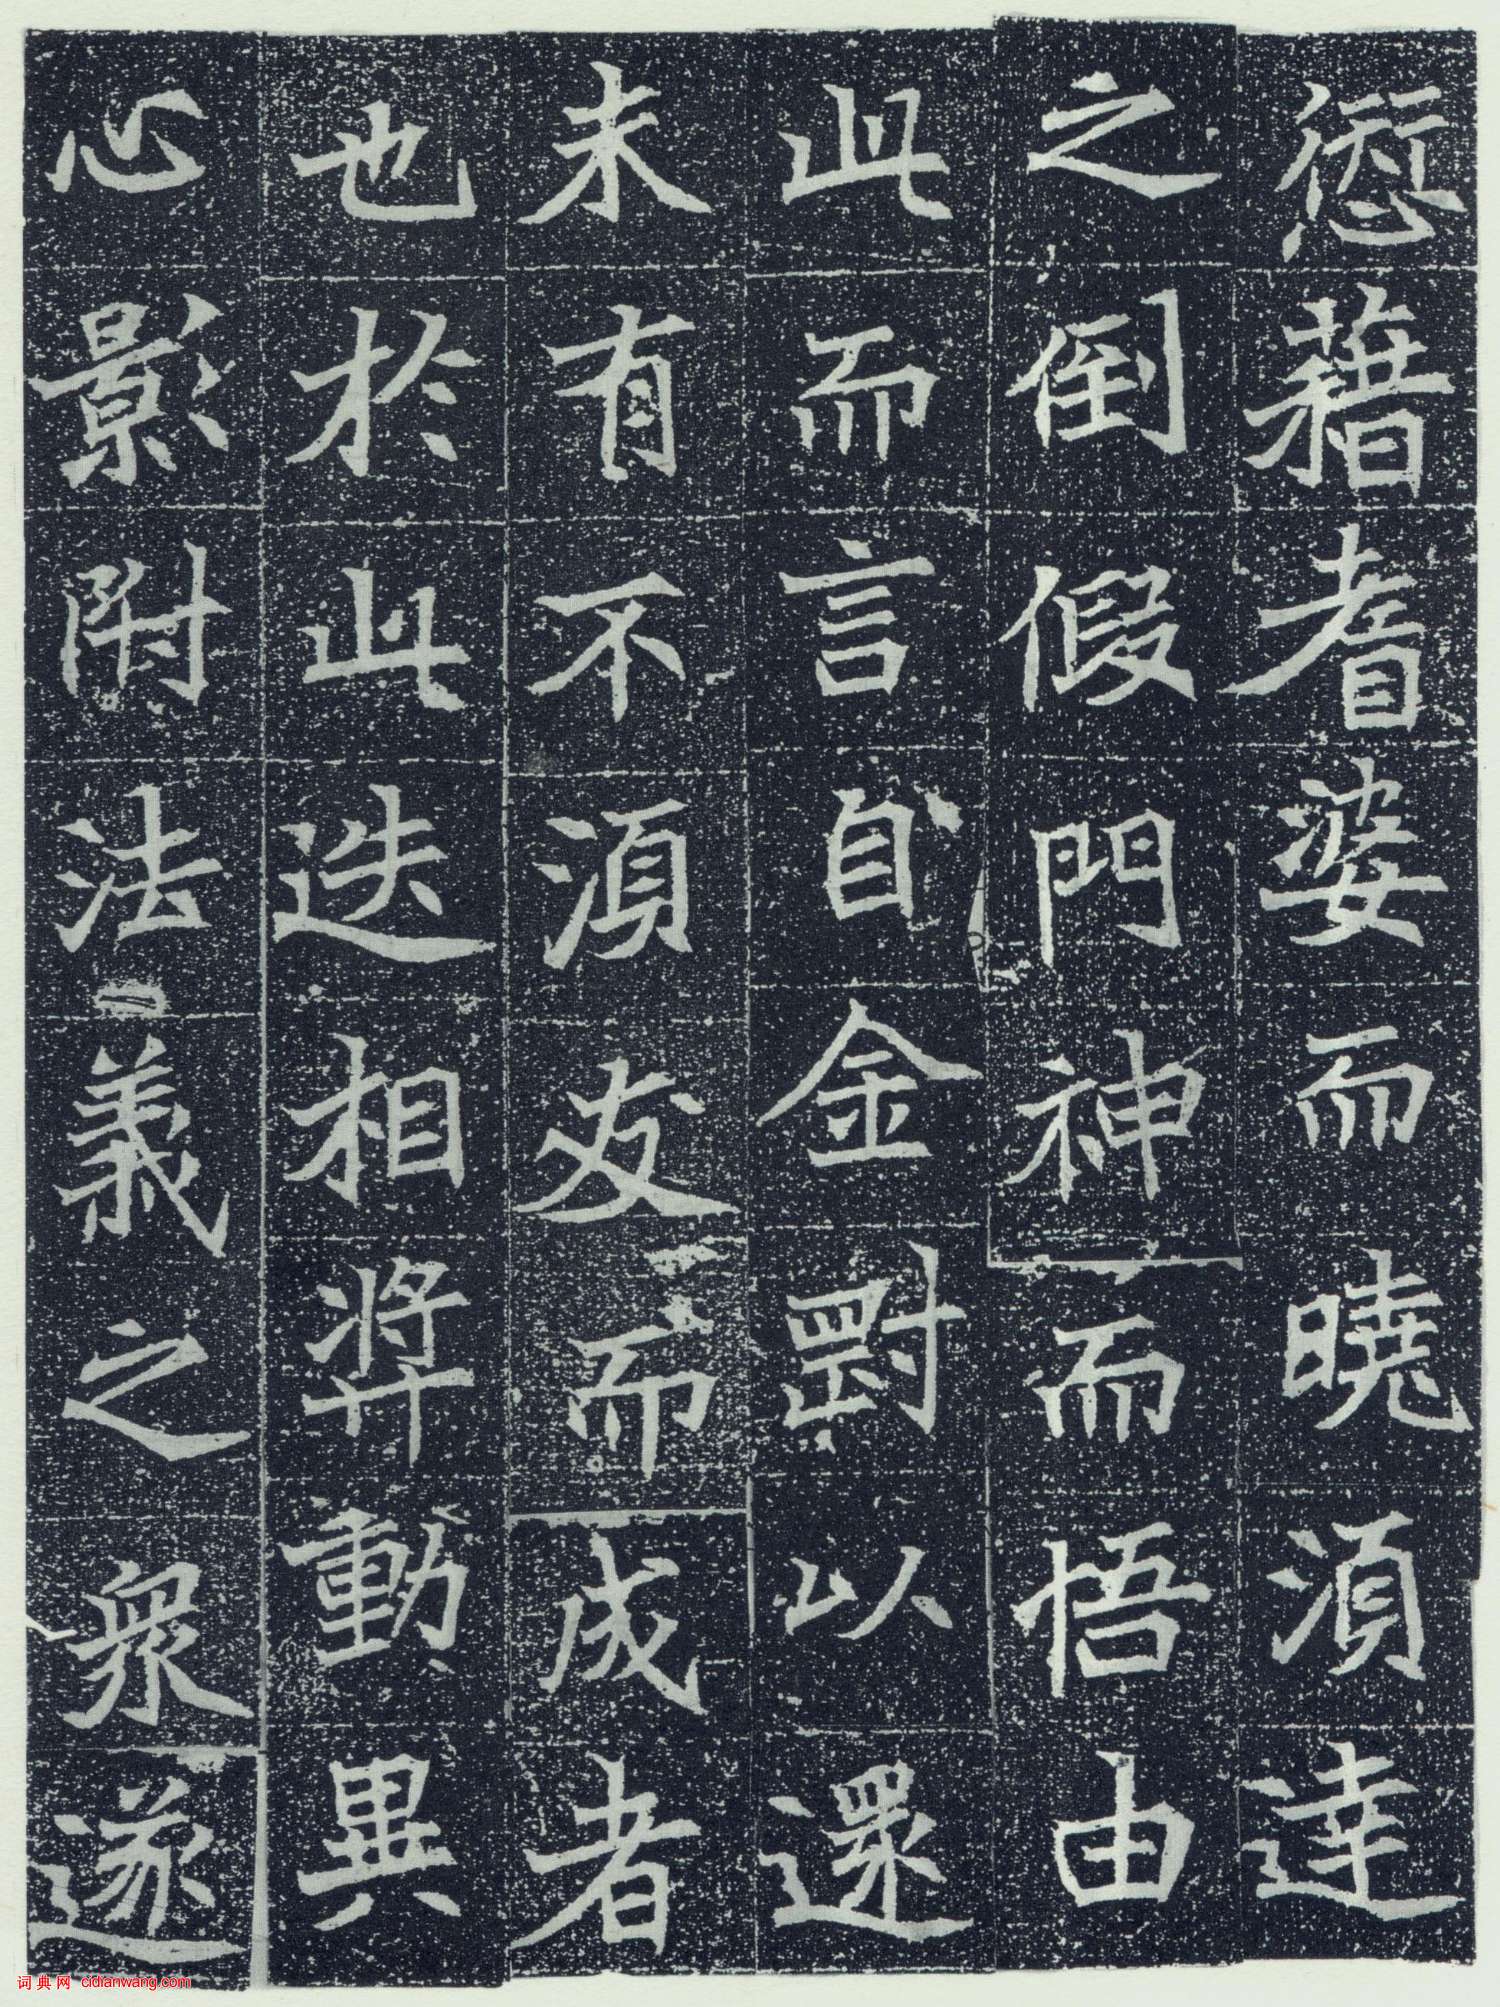 愆藉耆婆而曉須達
之倒假門神而悟由
此而言自金對以還
未有不須友而成者
也於此迭相弉動異
心影附法義之衆遂
词典网 cidianwang.com